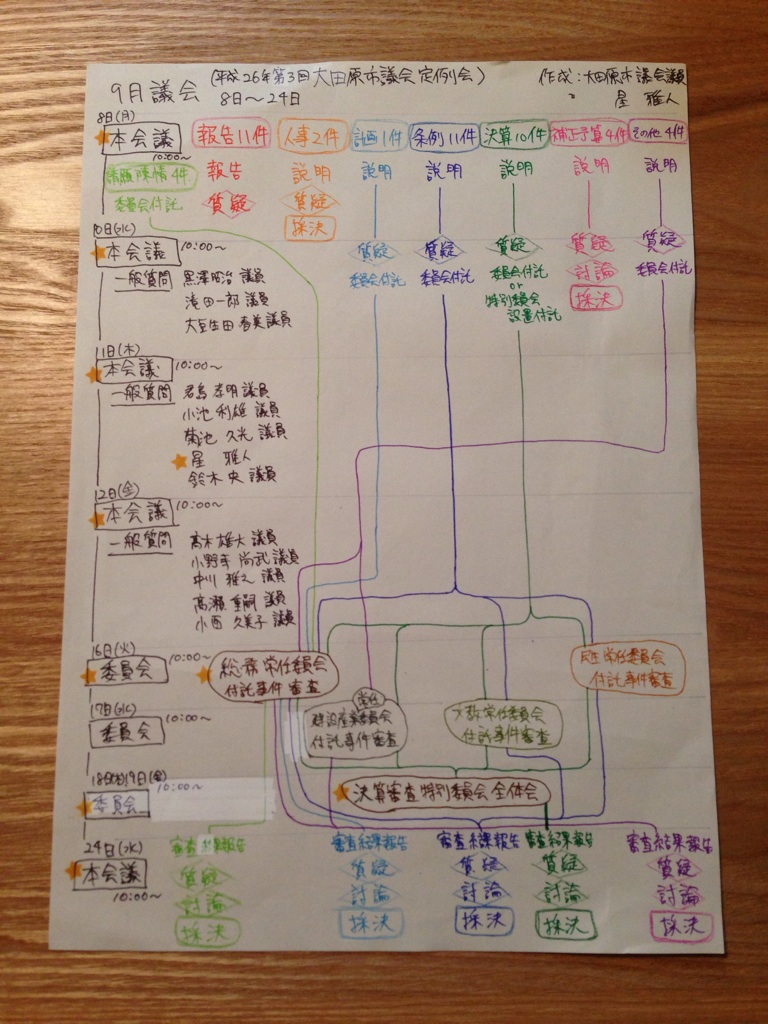 9月議会 (平成26年第3回大田原市議会定例会) 作成:大田原市議会議員
8日〜24日 星 雅人
8日(月)
本会議 報告11件 人事2件 計画1件 条例11件 決算10件 補正予算4件 その他4件
10:00〜
請願陳情4件 報告 説明 説明 説明 説明 説明 説明
委員会付託 質疑 質疑 質疑
採決
10日(水)
本会議 10:00〜 質疑 質疑 質疑 質疑
一般質問 黒澤昭治 議員 委員会付託 委員会付託 委員会付託 討論 委員会付託
滝田一郎 議員 or 採決
大豆生田 春美 議員 特別委員会
設置付託
11日(木)
本会議 10:00〜
一般質問 君島 孝明 議員
小池 利雄 議員
菊池 久光 議員
星 雅人
鈴木 央 議員
12日(金)
本会議 10:00〜
一般質問 高木 雄大 議員
小野寺 尚武 議員
中川 雅之 議員
高瀬 重嗣 議員
小西 久美子 議員
16日(火)
委員会 10:00〜 総務常任委員会 民生常任委員会
付託事件 審査 付託事件審査
17日(水)
委員会 10:00〜 建設産業委員会 常任 文教常任委員会
付託事件審査 付託事件審査
18日(木)19日(金)
委員会 10:00〜 決算審査特別委員会 全体会
24日(水)
本会議 審査結果報告 審査結果報告 審査結果報告 審査結果報告 審査結果報告
10:00〜 質疑 質疑 質疑 質疑 質疑
討論 討論 討論 討論 討論
採決 採決 採決 採決 採決